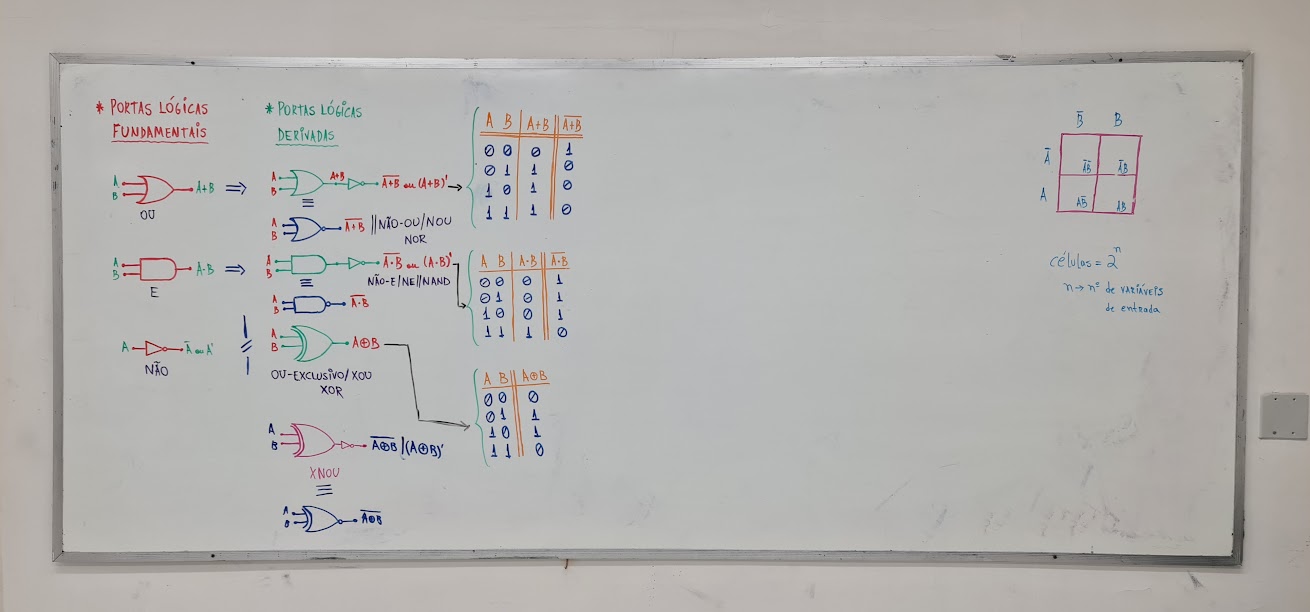 * PORTAS LÓGICAS
FUNDAMENTAIS
A
B
A+B
OU
A
B
A·B
E
A
Ā ou A'
NÃO
* PORTAS LÓGICAS
DERIVADAS
A
B
A+B
A̅+̅B̅ ou (A+B)'
≡
A
B
A̅+̅B̅ || NÃO-OU/NOU
NOR
A
B
A̅·̅B̅ ou (A·B)'
≡
NÃO-E/NE//NAND
A
B
A̅·̅B̅
A
B
A⊕B
OU-EXCLUSIVO/XOU
XOR
A
B
A̅⊕̅B̅ / (A⊕B)'
XNOU
≡
A
B
A̅⊕̅B̅
A B A+B A̅+̅B̅
0 0 0 1
0 1 1 0
1 0 1 0
1 1 1 0
A B A·B A̅·̅B̅
0 0 0 1
0 1 0 1
1 0 0 1
1 1 1 0
A B A⊕B
0 0 0
0 1 1
1 0 1
1 1 0
B̅ B
A̅ A̅B̅ A̅B
A AB̅ AB
células = 2ⁿ
n → nº de VARIÁVEIS
de entrada